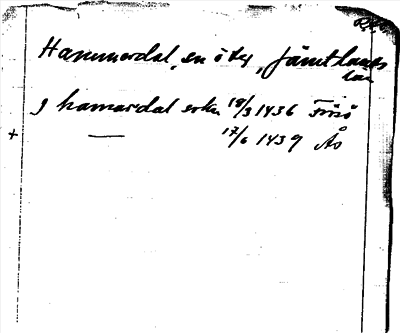 Hammerdal, en öter, Jämtlands
lan
J hamardal sokn 18/3 1436 Frösö
+ — 17/6 1439 Ås